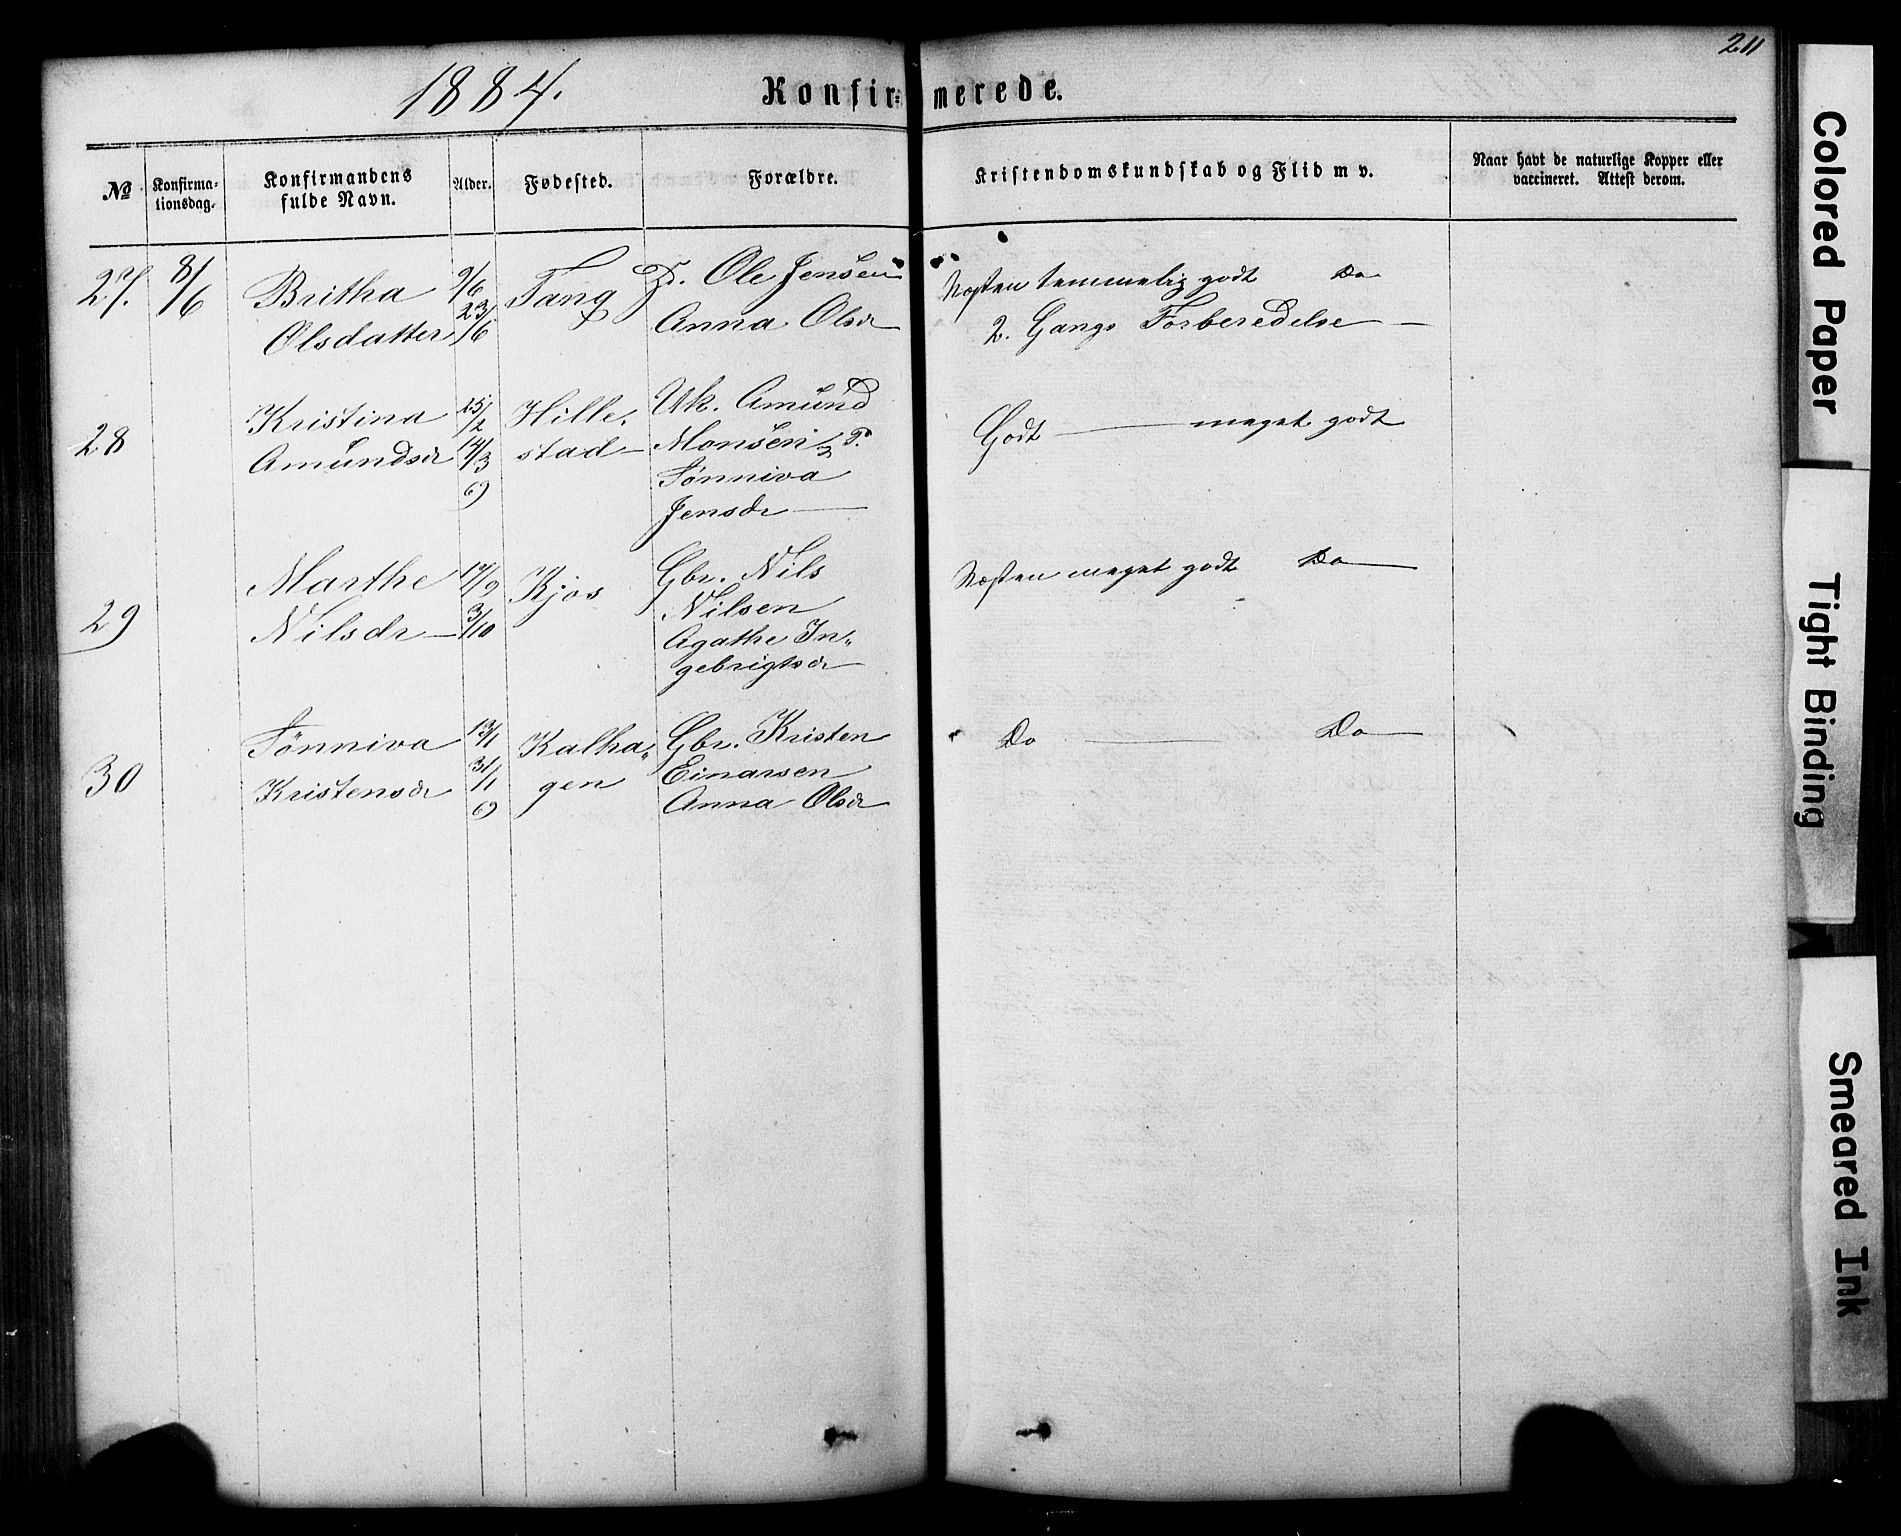 211
1884.
Konfir= merede.
No
Konfirma-
tionsdag.
Konfirmandens
fulde Navn.
Alder.
Fødested.
Forældre.
Kristendomskundskab og Flid m v.
Naar havt de naturlige Kopper eller
vaccineret. Attest derom.
27. 8/6 Britha 9/6 Tang P. Ole Jensen Næsten temmelig godt Do
Olsdatter 23/6 Anna Olsdr 2. Gangs Forberedelse
28 Kristina 25/2 Hille- Uk. Amund Godt meget godt
Amundsdr 14/3 stad Monsen
69 Sønniva
Jensdr
29 Marthe 17/9 Kjos Gbr. Nils Næsten meget godt Do
Nilsdr 3/10 Nilsen
Agathe In-
gebrigtsdr
30 Sønniva 13/1 Kalha- Gbr. Kristen Do Do
Kristensdr 31/1 gen Einarsen
69 Anna Olsdr
Colored Paper
Tight Binding
Smeared Ink